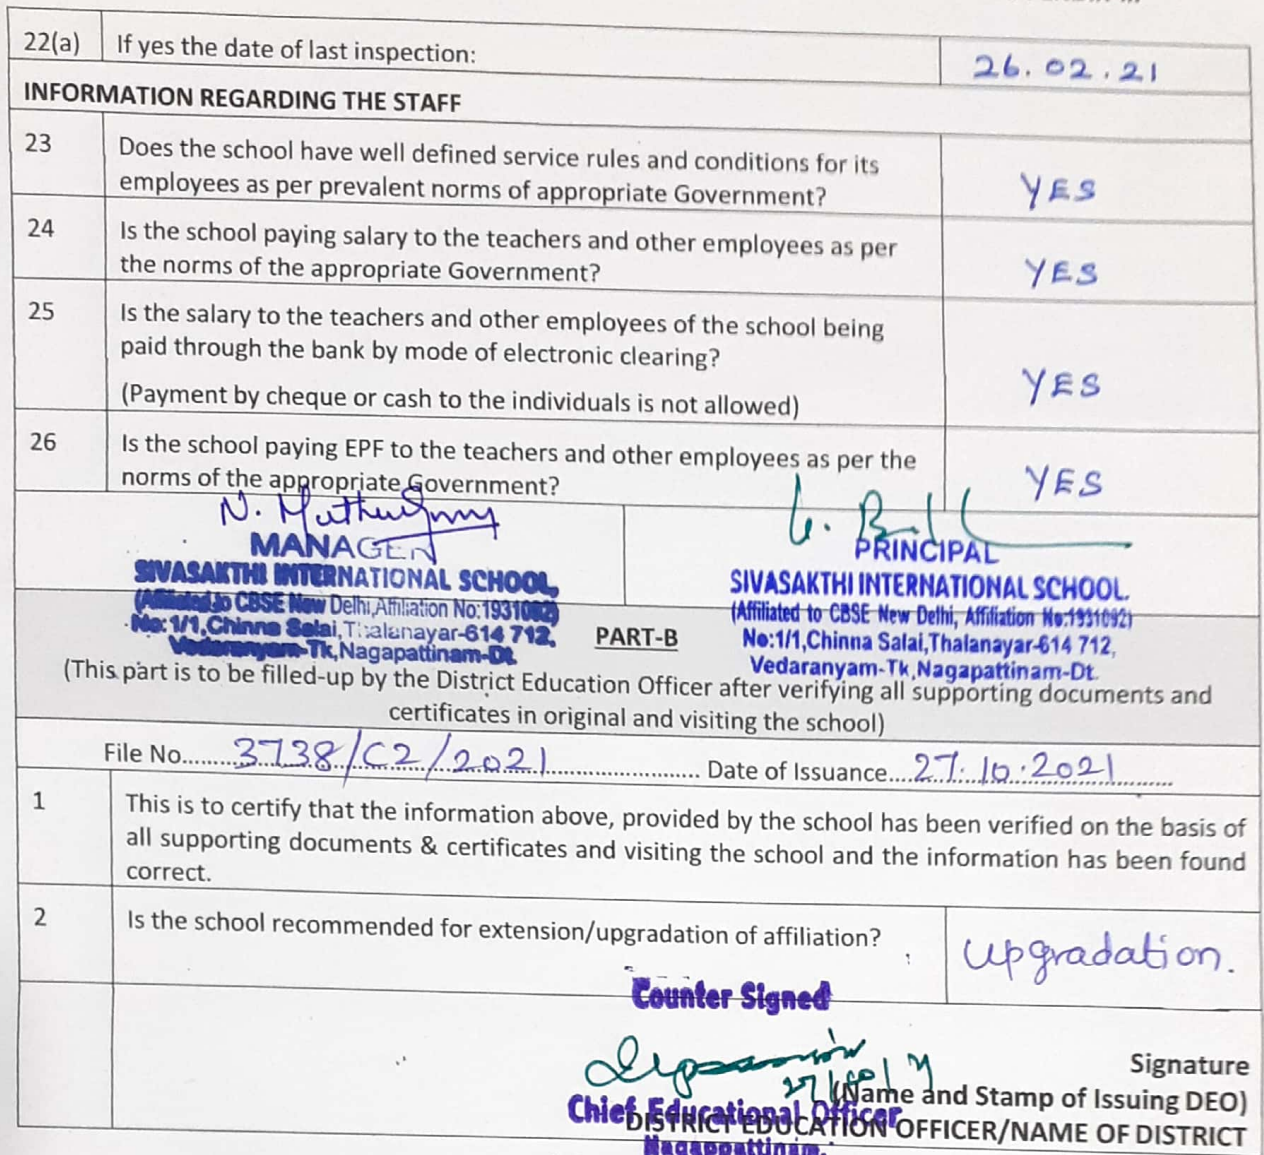 22(a) If yes the date of last inspection: 26.02.21
INFORMATION REGARDING THE STAFF
23 Does the school have well defined service rules and conditions for its
employees as per prevalent norms of appropriate Government? YES
24 Is the school paying salary to the teachers and other employees as per
the norms of the appropriate Government? YES
25 Is the salary to the teachers and other employees of the school being
paid through the bank by mode of electronic clearing?
YES
(Payment by cheque or cash to the individuals is not allowed)
26 Is the school paying EPF to the teachers and other employees as per the
norms of the appropriate Government? YES
MANAGER
SIVASAKTHI INTERNATIONAL SCHOOL,
(Affiliated to CBSE New Delhi, Affiliation No:1931092)
No:1/1,Chinna Salai,Thalanayar-614 712,
Vedaranyam-Tk,Nagapattinam-Dt.
PRINCIPAL
SIVASAKTHI INTERNATIONAL SCHOOL.
(Affiliated to CBSE New Delhi, Affiliation No:1931092)
No:1/1,Chinna Salai,Thalanayar-614 712,
Vedaranyam-Tk,Nagapattinam-Dt.
PART-B
(This part is to be filled-up by the District Education Officer after verifying all supporting documents and
certificates in original and visiting the school)
File No. 3738/C2/2021 Date of Issuance 27.10.2021
1 This is to certify that the information above, provided by the school has been verified on the basis of
all supporting documents & certificates and visiting the school and the information has been found
correct.
2 Is the school recommended for extension/upgradation of affiliation? upgradation.
Counter Signed
Signature
(Name and Stamp of Issuing DEO)
Chief Educational Officer
DISTRICT EDUCATION OFFICER/NAME OF DISTRICT
Nagappattinam.